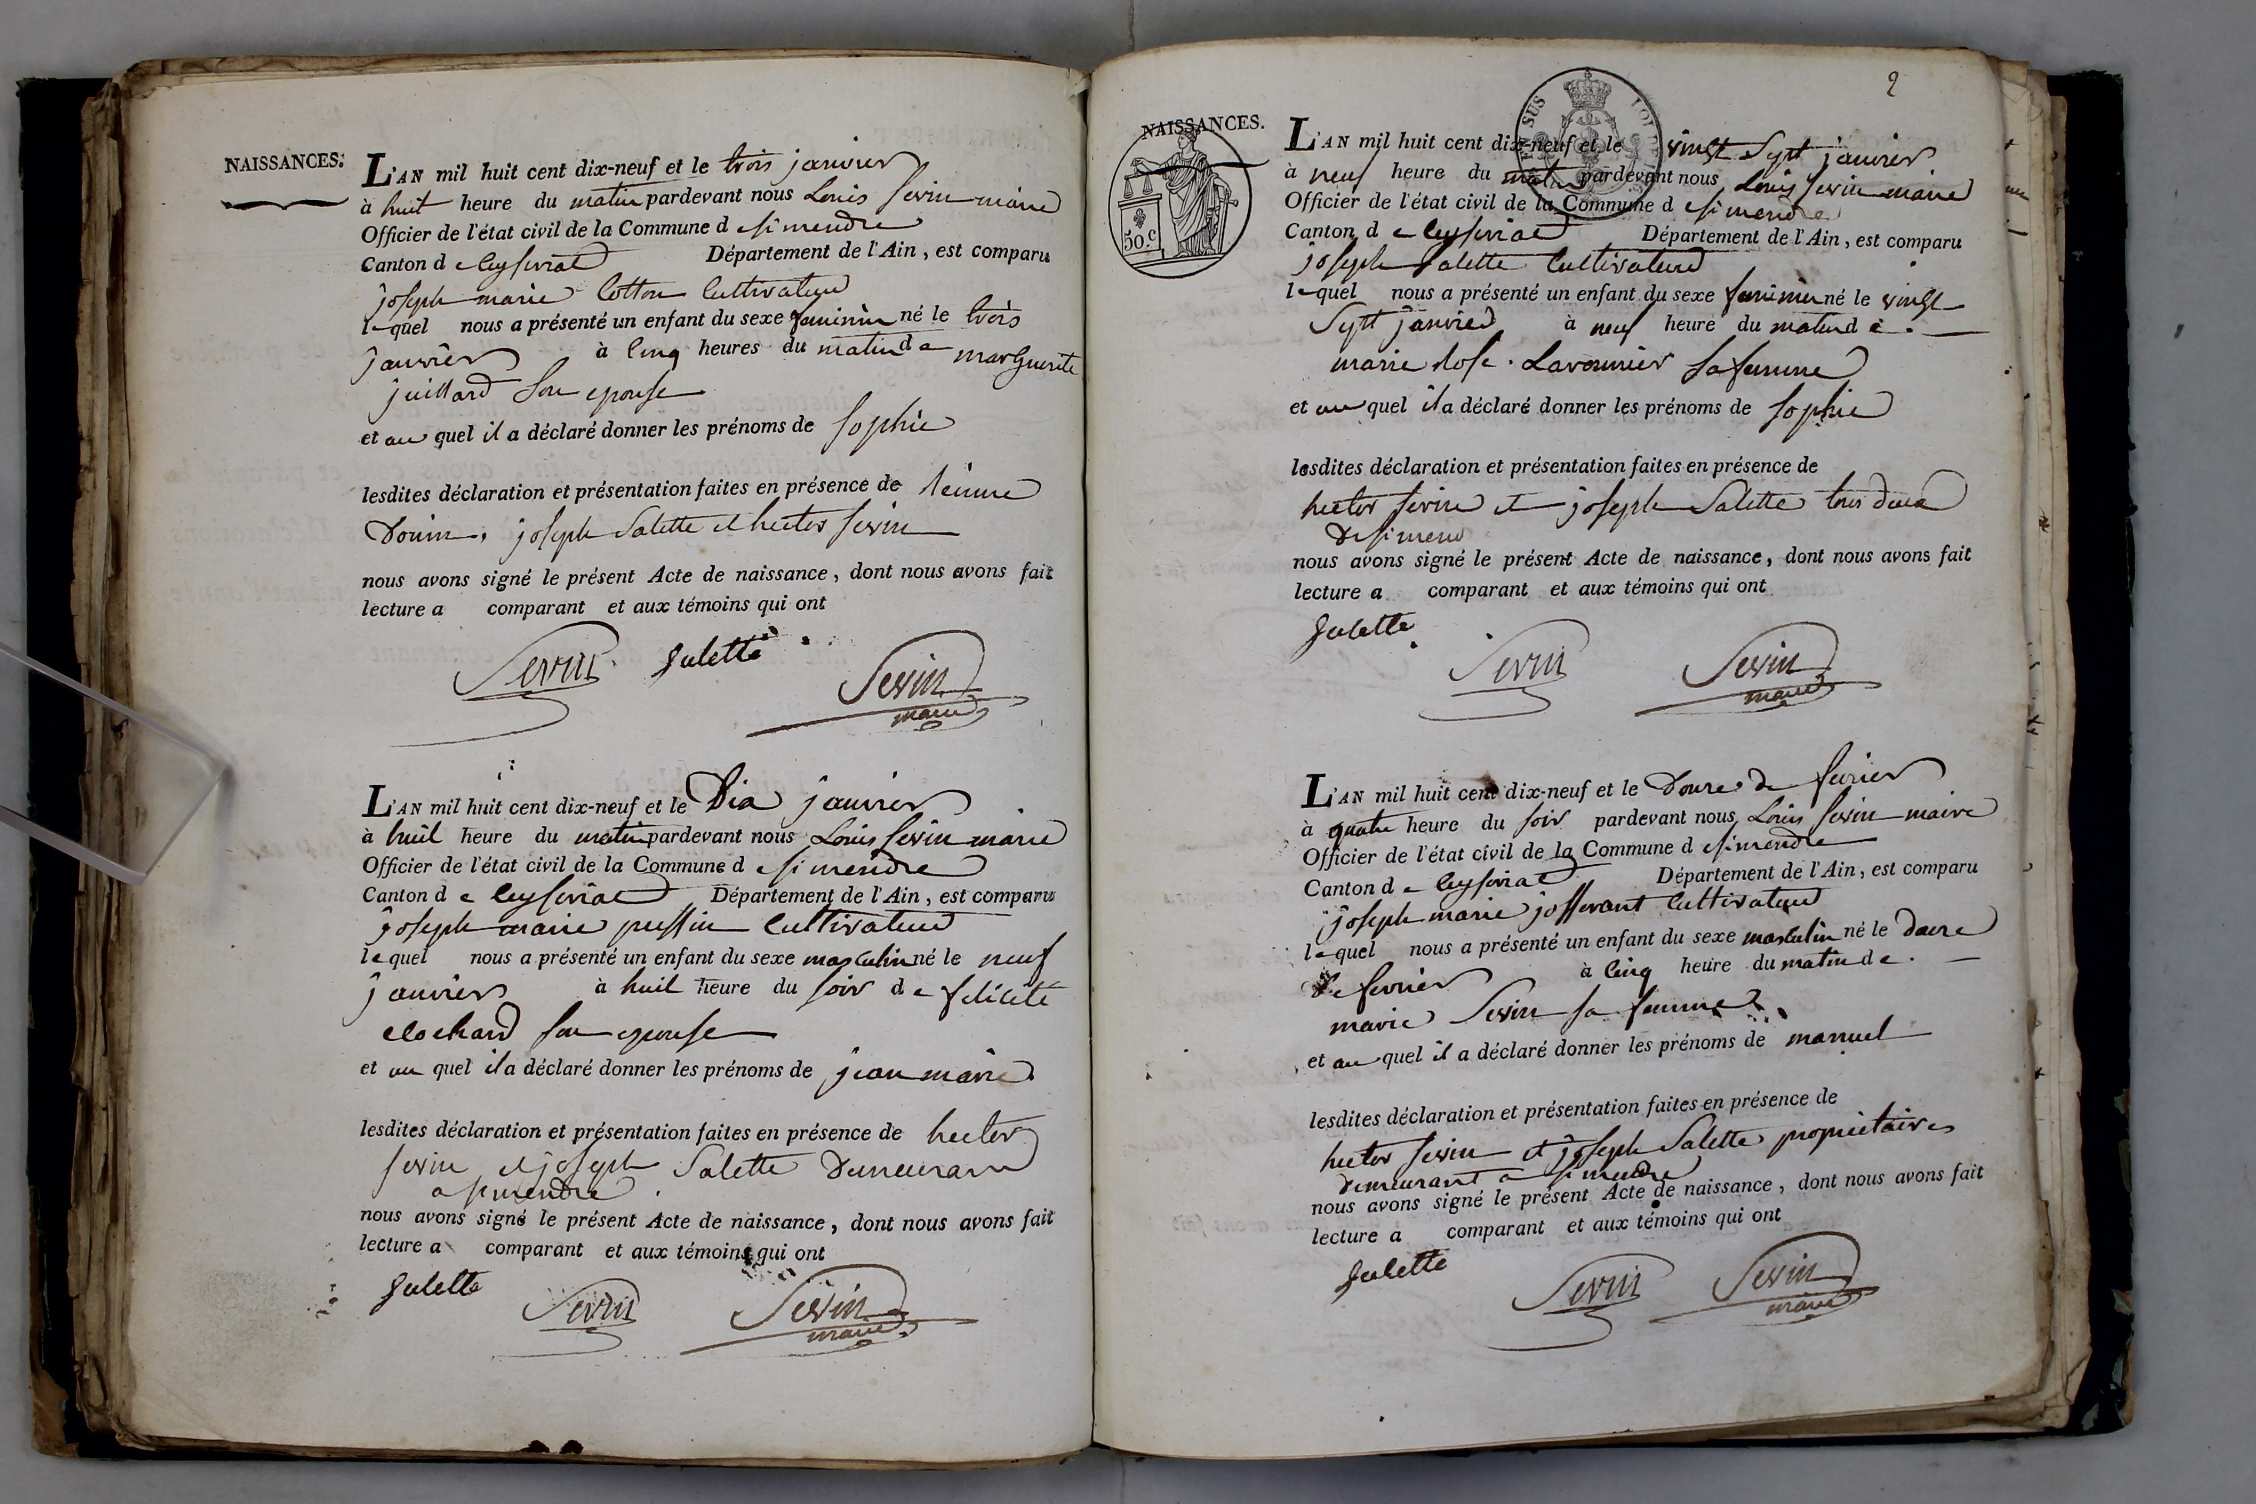 NAISSANCES.
L'AN mil huit cent dix-neuf et le trois janvier
à huit heure du matin pardevant nous Louis Sevin maire
Officier de l'état civil de la Commune d e Simendre
Canton d e Ceyseriat Département de l'Ain, est comparu
joseph marie Cotton Cultivateur
lequel nous a présenté un enfant du sexe feminin né le trois
janvier à Cinq heures du matin d e marguerite
juillard Son epouse
et au quel il a déclaré donner les prénoms de Sophie
lesdites déclaration et présentation faites en présence de
joseph Salette et hector Sevin
nous avons signé le présent Acte de naissance, dont nous avons fait
lecture a comparant et aux témoins qui ont
Sevin Salette Sevin
maire
L'AN mil huit cent dix-neuf et le Dix janvier
à huit heure du matin pardevant nous Louis Sevin maire
Officier de l'état civil de la Commune d e Simendre
Canton d e Ceyseriat Département de l'Ain, est comparu
joseph marie Cultivateur
lequel nous a présenté un enfant du sexe masculin né le neuf
janvier à huit heure du Soir d e felicité
clochard Son epouse
et au quel il a déclaré donner les prénoms de jean marie
lesdites déclaration et présentation faites en présence de hector
Sevin et joseph Salette Demeurant
a Simendre
nous avons signé le présent Acte de naissance, dont nous avons fait
lecture a comparant et aux témoins qui ont
Salette Sevin Sevin
maire
2
NAISSANCES.
EN SUS
50.c
L'AN mil huit cent dix-neuf et le vingt Sept janvier
à neuf heure du matin pardevant nous Louis Sevin maire
Officier de l'état civil de la Commune d e Simendre
Canton d e Ceyseriat Département de l'Ain, est comparu
joseph Salette Cultivateur
lequel nous a présenté un enfant du sexe feminin né le vingt
Sept janvier à neuf heure du matin d e
marie Rose Lavounier Sa femme
et au quel il a déclaré donner les prénoms de Sophie
lesdites déclaration et présentation faites en présence de
hector Sevin et joseph Salette tous deux
de Simend
nous avons signé le présent Acte de naissance, dont nous avons fait
lecture a comparant et aux témoins qui ont
Salette Sevin Sevin
maire
L'AN mil huit cent dix-neuf et le Douze de fevrier
à quatre heure du Soir pardevant nous Louis Sevin maire
Officier de l'état civil de la Commune d e Simendre
Canton d e Ceyseriat Département de l'Ain, est comparu
joseph marie josserant Cultivateur
lequel nous a présenté un enfant du sexe masculin né le douze
de fevrier à Cinq heure du matin d e
marie Sevin Sa femme
et au quel il a déclaré donner les prénoms de manuel
lesdites déclaration et présentation faites en présence de
hector Sevin et joseph Salette proprietaires
demeurant a Simendre
nous avons signé le présent Acte de naissance, dont nous avons fait
lecture a comparant et aux témoins qui ont
Salette Sevin Sevin
maire